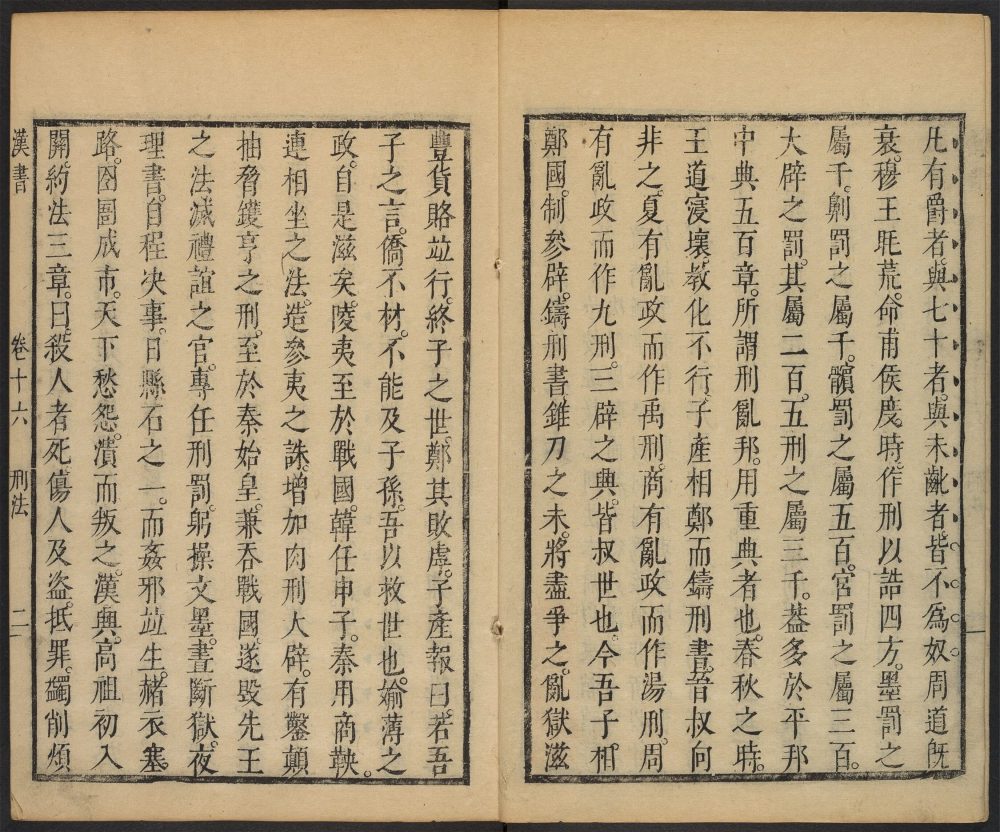 凡有爵者。與七十者。與未齔者。皆不爲奴。周道旣
衰。穆王眊荒。命甫侯度。時作刑以誥四方。墨罰之
屬千。劓罰之屬千。髕罰之屬五百。宮罰之屬三百。
大辟之罰。其屬二百。五刑之屬三千。葢多於平邦
中典五百章。所謂刑亂邦。用重典者也。春秋之時。
王道寖壞。敎化不行。子產相鄭而鑄刑書。晉叔向
非之。夏有亂政而作禹刑。商有亂政而作湯刑。周
有亂政而作九刑。三辟之興。皆叔世也。今吾子相
鄭國。制參辟。鑄刑書。錐刀之末。將盡爭之。亂獄滋
豐。貨賂竝行。終子之世。鄭其敗虖。子產報曰。若吾
子之言。僑不材。不能及子孫。吾以救世也。媮薄之
政。自是滋矣。陵夷至於戰國。韓任申子。秦用商鞅。
連相坐之法。造參夷之誅。增加肉刑大辟。有鑿顚
抽脅鑊亨之刑。至於秦始皇。兼吞戰國。遂毀先王
之法。滅禮誼之官。專任刑罰。躬操文墨。晝斷獄。夜
理書。自程決事。日縣石之一。而姦邪竝生。赭衣塞
路。囹圄成市。天下愁怨。潰而叛之。漢興。高祖初入
關。約法三章。曰。殺人者死。傷人及盜。抵罪。蠲削煩
漢書 卷十六 刑法 二